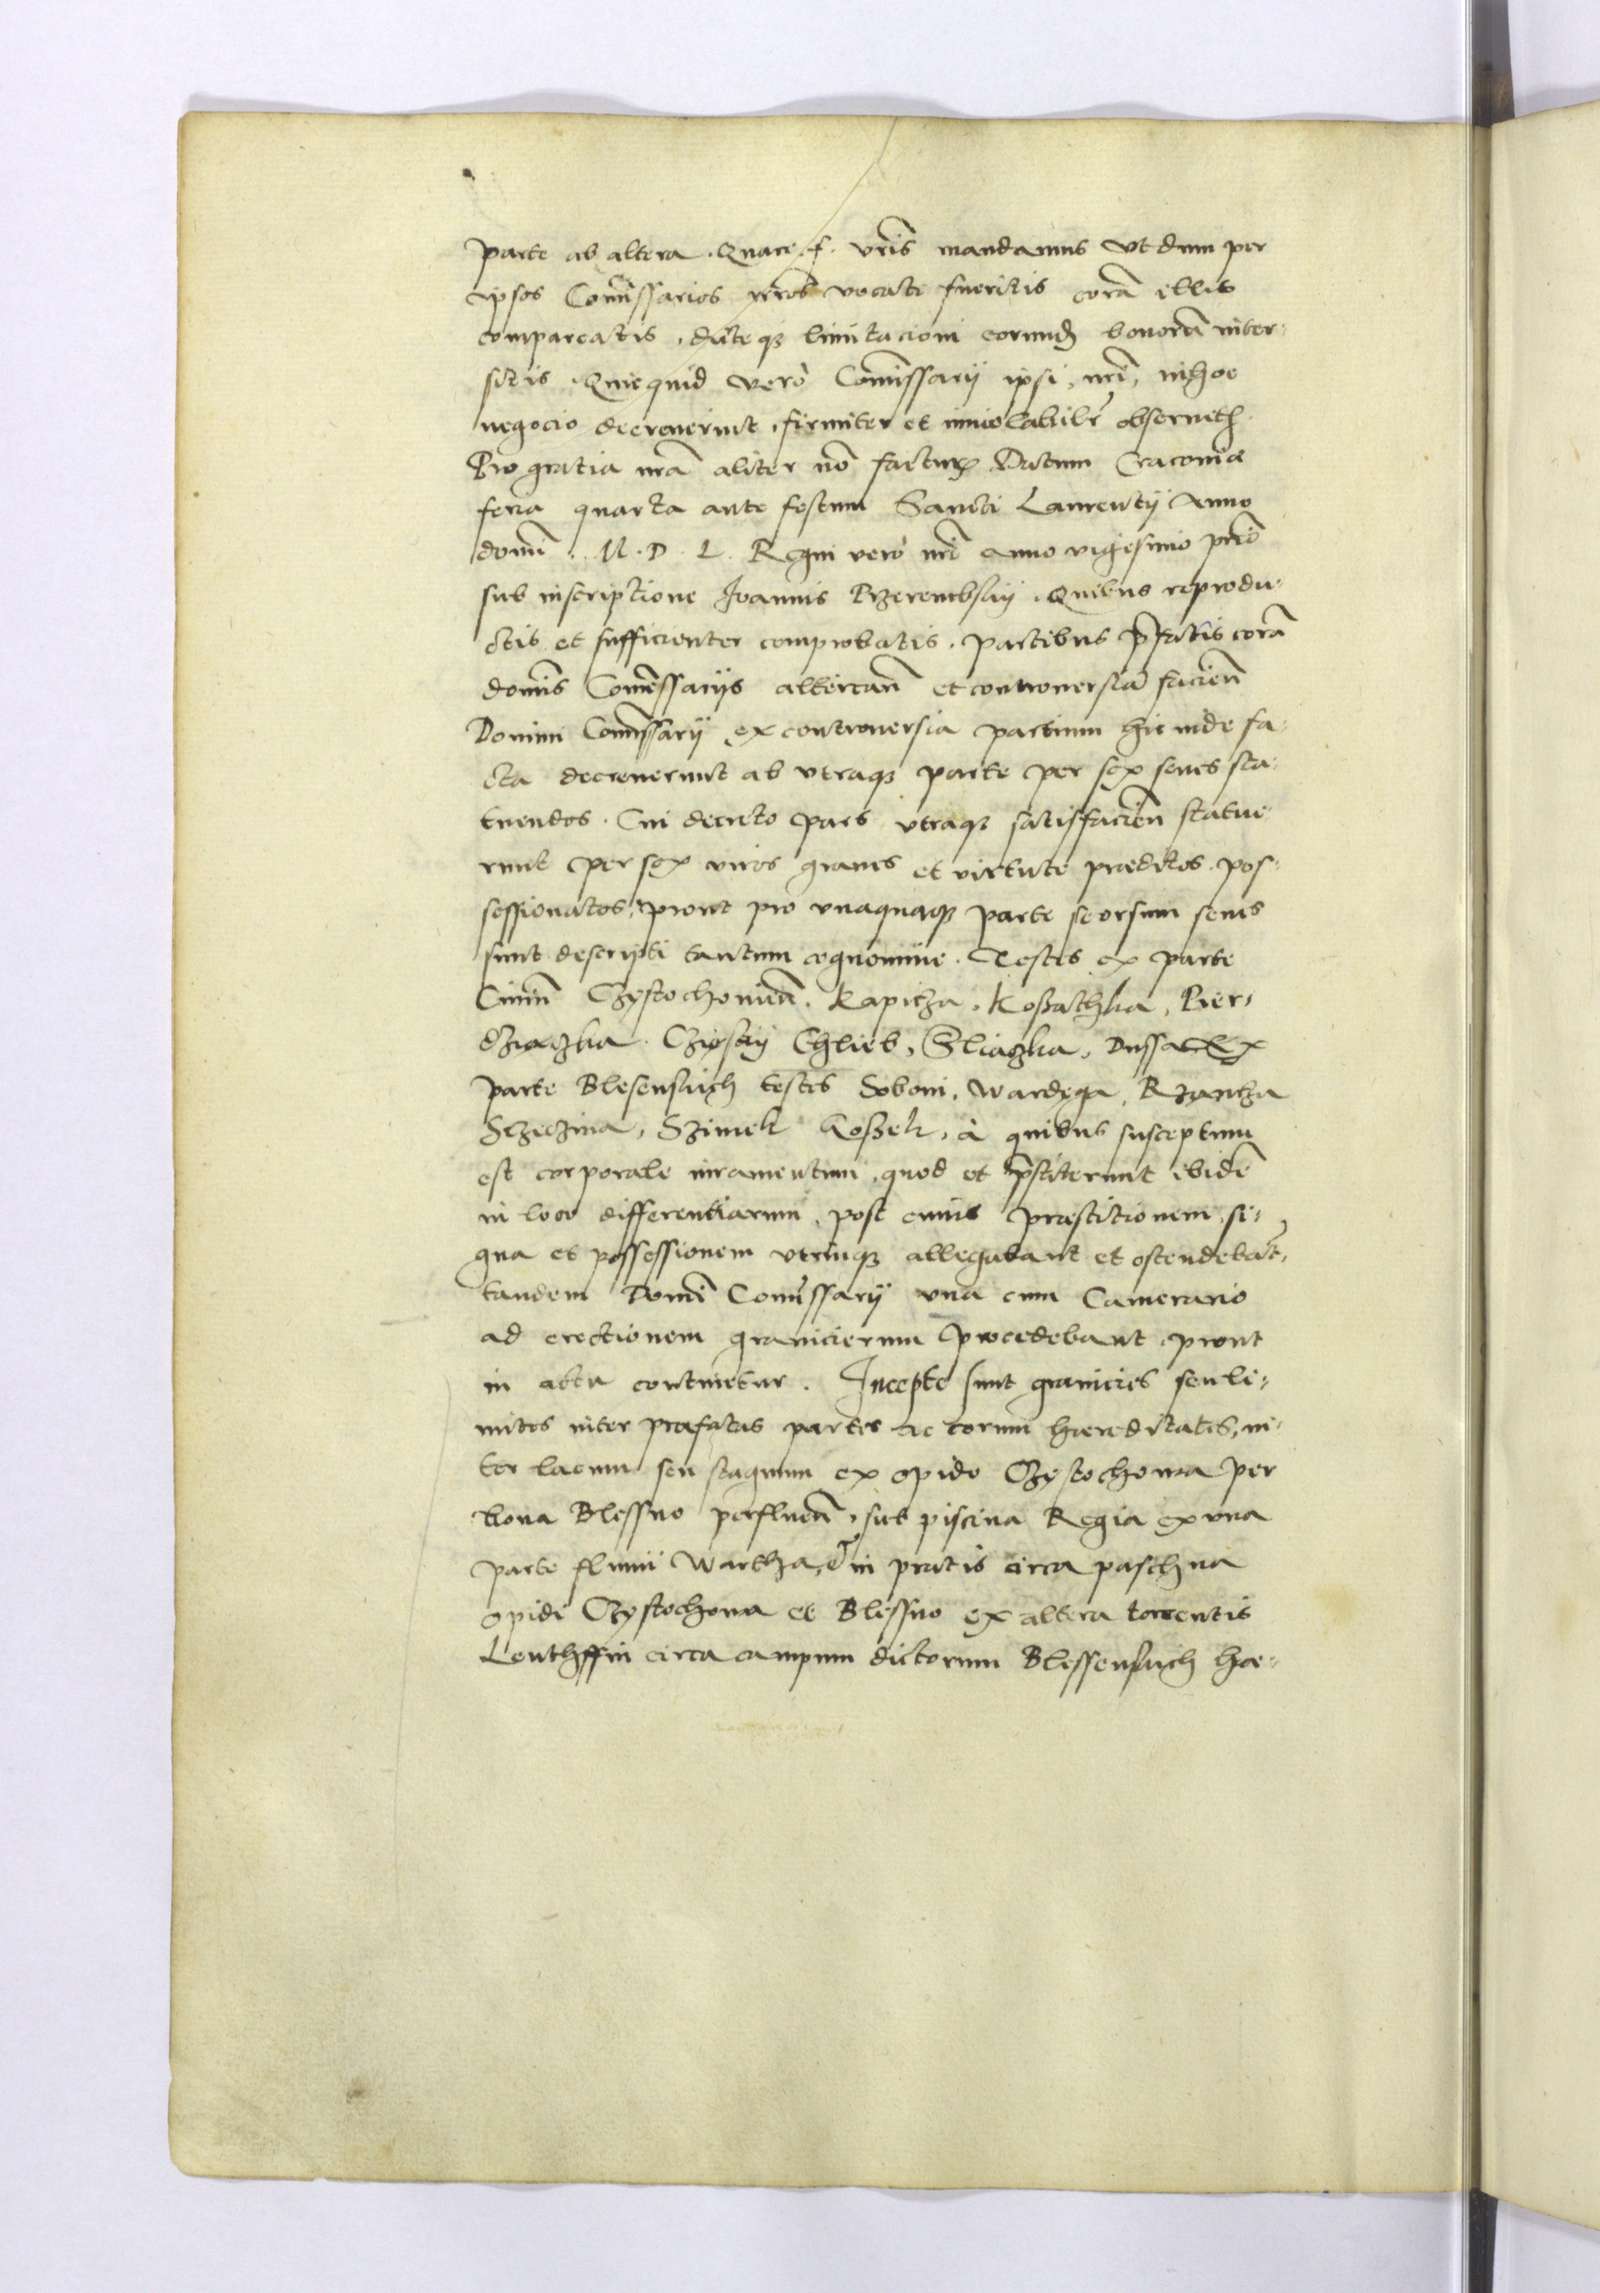 parte ab altera. Quare f. vris mandamus vt dum per
ipsos Comissarios nros vocati fueritis corã illis
compareatis, dicteqz limitacioni eorundz bonorũ inter-
sitis. Quicquid vero Comissarij ipsi nri, in hoc
negocio decreverint, firmiter et inviolabilr observetis
Pro gratia nrã aliter nõ facturi. Datum Cracoviæ
feria quarta ante festum Sancti Laurentij Anno
domi. M. D. L. Regni vero nri anno vigesimo primo
sub inscriptione Joannis Przerembskij. Quibus reprodu-
ctis et sufficienter comprobatis. partibus p̃fatis corã
domis Comissarijs altercan̄ et controversiã facien̄
Domini Comissarij ex controversia partium hic inde fa-
cta decreverunt ab vtraqz parte per sex senes sta-
tuendos. Cui decreto pars vtraqz satisfacien̄ statue-
runt per sex viros graves et virtute præditos. pos-
sessionatos, prout pro vnaquaqz parte seorsum senes
sunt descripti tantum cognomine. Testes ex parte
Civiũ Czestochoviẽn. Kapicza. Koßathka, Pier-
dziaczka. Czijskij Chlieb, Sliazka, Dussa Ex
parte Blesenskich testes Soboni, Wardega, Rzantza
Sczeczina, Szimek Koßek, à quibus susceptum
est corporale iuramentum, quod et p̃stiterunt ibidẽ
in loco differentiarum, post cuius præstitionem, si-
gna et possessionem vtrinqz allegabant et ostendebãt,
tandem Domi Comissarij vna cum Camerario
ad erectionem granicierum procedebant prout
in actu continetur. Incepte sunt granicies seu li-
mites inter præfatas partes ac eorum hæreditates, in-
ter lacum seu stagnum ex opido Czestochowa per
bona Blessno perfluẽn, sub piscina Regia ex vna
parte fluvij Wartha, & in pratis circa paschua
opidi Czestochowa et Blessno ex altera torrentis
circa campum dictorum Blessenskich hæ-